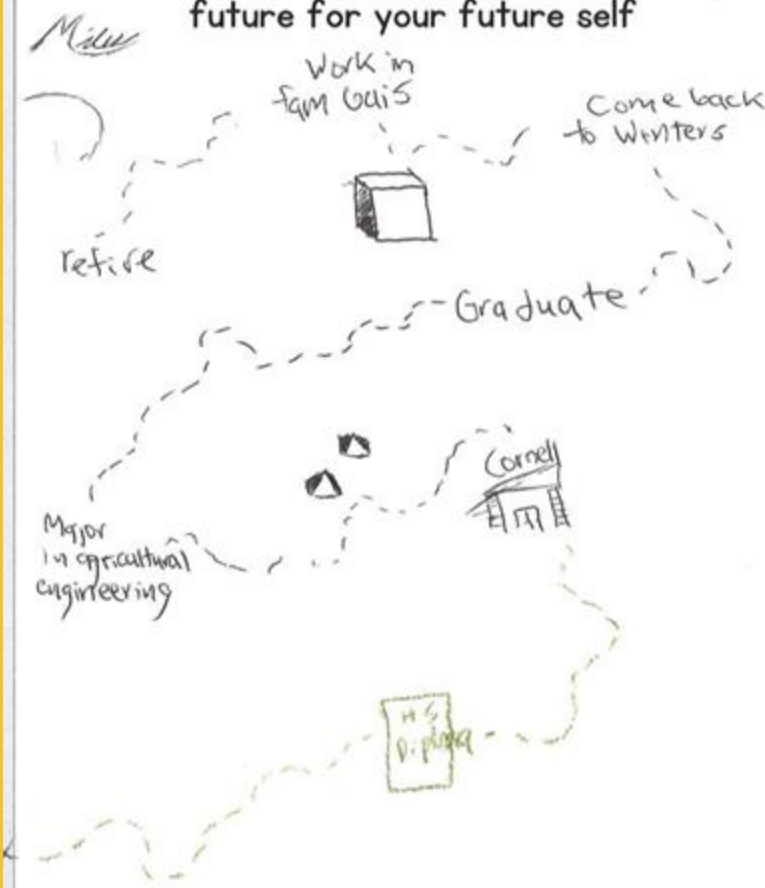 future for your future self
Miles
Work in
fam
Come back
to Winters
retire
Graduate
Cornell
Major
in agricultural
engineering
H S
Diploma